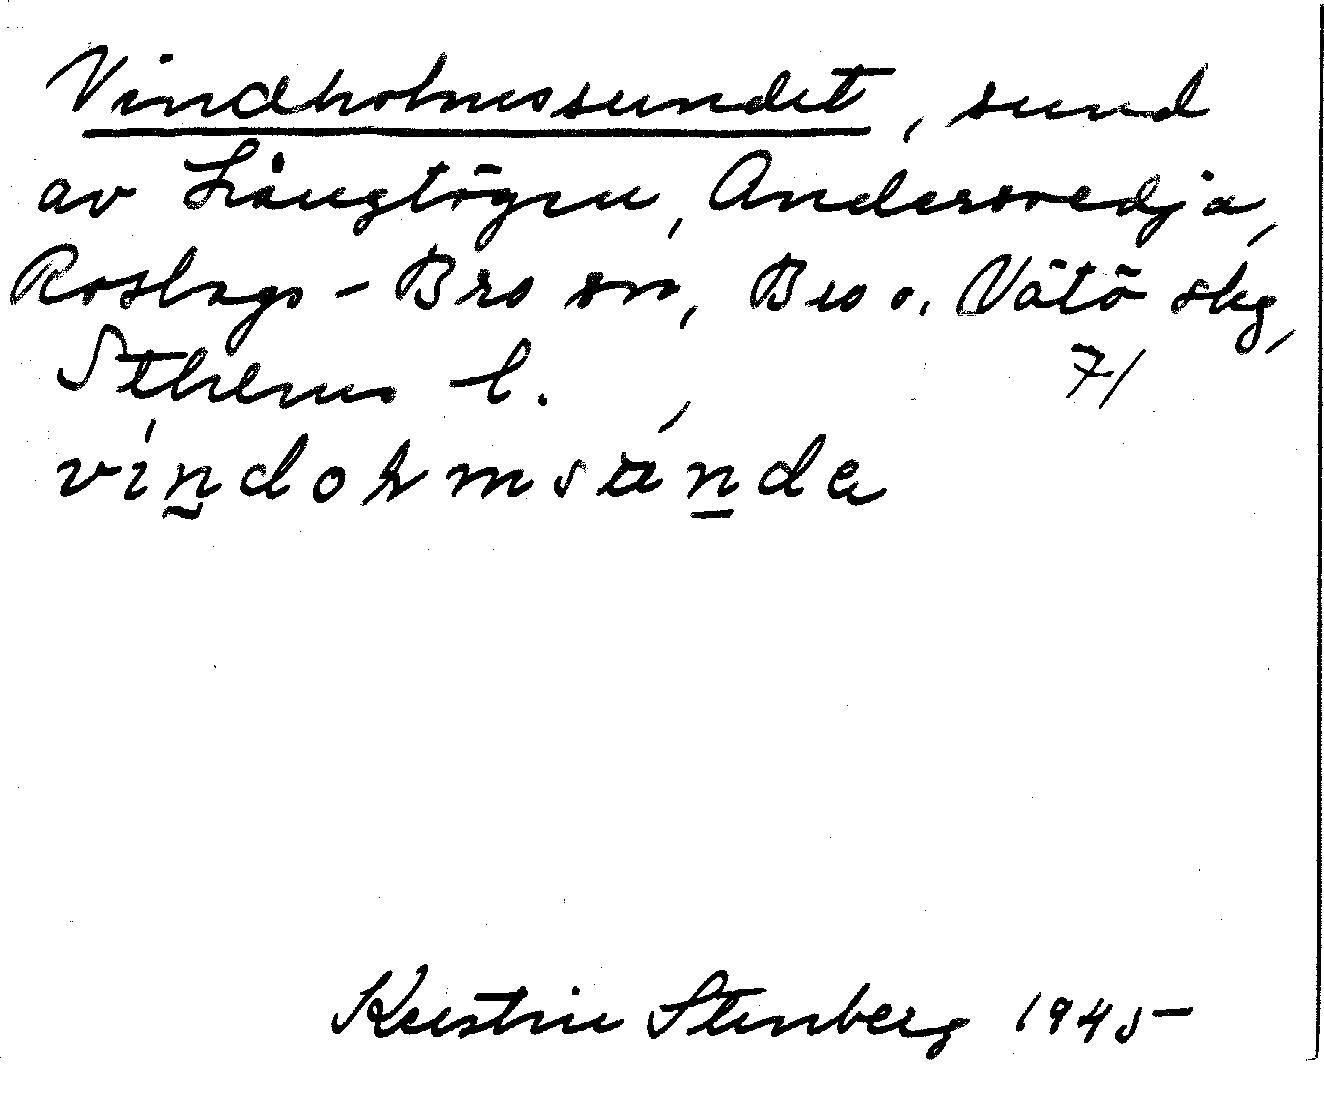 Vindholmssundet, sund
av Långtögen, Andersvedja,
Roslags-Bro sn, Bro o. Vätö skg,
Sthlms l. 7/
vindoḷmsunde
Kerstin Stenberg 1945